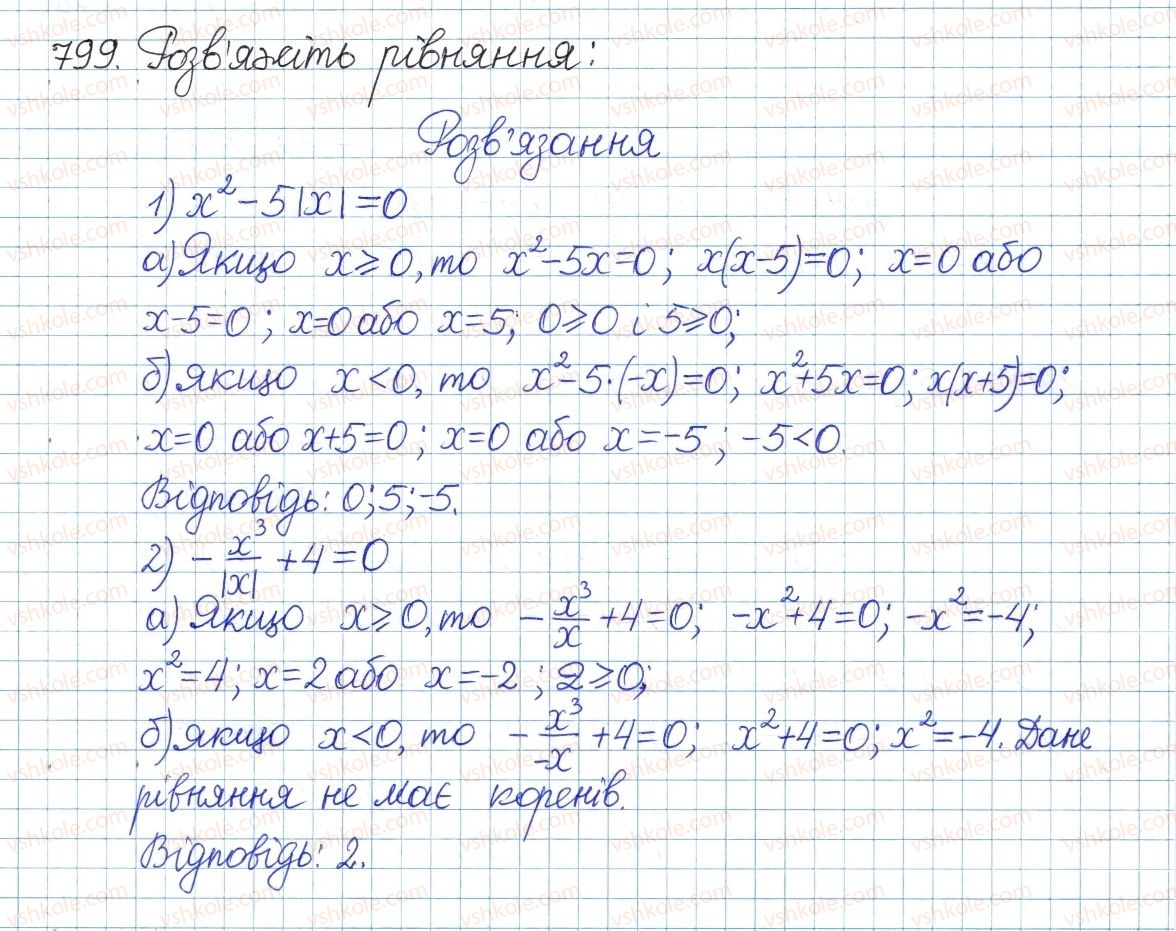 799. Розв'яжіть рівняння:
Розв'язання
1) x² - 5|x| = 0
а) Якщо x ⩾ 0, то x² - 5x = 0; x(x-5) = 0; x = 0 або
x - 5 = 0; x = 0 або x = 5; 0 ⩾ 0 і 5 ⩾ 0;
б) якщо x < 0, то x² - 5·(-x) = 0; x² + 5x = 0; x(x+5) = 0;
x = 0 або x + 5 = 0; x = 0 або x = -5; -5 < 0.
Відповідь: 0; 5; -5.
2) - x³/|x| + 4 = 0
а) Якщо x ⩾ 0, то - x³/x + 4 = 0; -x² + 4 = 0; -x² = -4;
x² = 4; x = 2 або x = -2; 2 ⩾ 0;
б) якщо x < 0, то - x³/-x + 4 = 0; x² + 4 = 0; x² = -4. Дане
рівняння не має коренів.
Відповідь: 2.